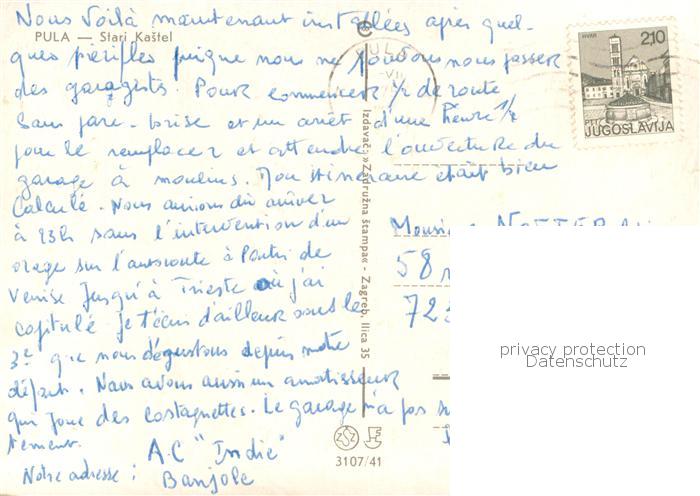 PULA — Stari Kaštel
Nous Voilà maintenant installées après quel-
ques périples puisque nous ne pouvons nous passer
des garagistes. Pour commencer 1/2 de route
sans pare-brise et un arrêt d'une heure 1/2
pour le remplacer et attendre l'ouverture du
garage à moulins. Mon itinéraire était bien
Calculé. Nous aurions dû arriver
à 23h sans l'intervention d'un
orage sur l'autoroute à Partir de
Venise jusqu'à Trieste où j'ai
capitulé je t'écris d'ailleurs sous le
3e que nous dégustons depuis notre
départ. Nous avons aussi un amortisseur
qui joue des castagnettes. Le garage n'a pas
tement.
A.C "Indie"
Notre adresse : Banjole
Izdavač: »Zadružna štampa« - Zagreb, Ilica 35
3107/41
PULA
VII
HVAR
2,10
PTT
JUGOSLAVIJA
Monsieur
58
72
privacy protection
Datenschutz